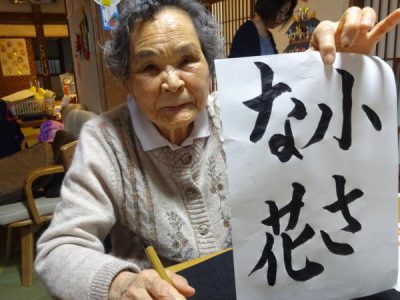 小さ
な花